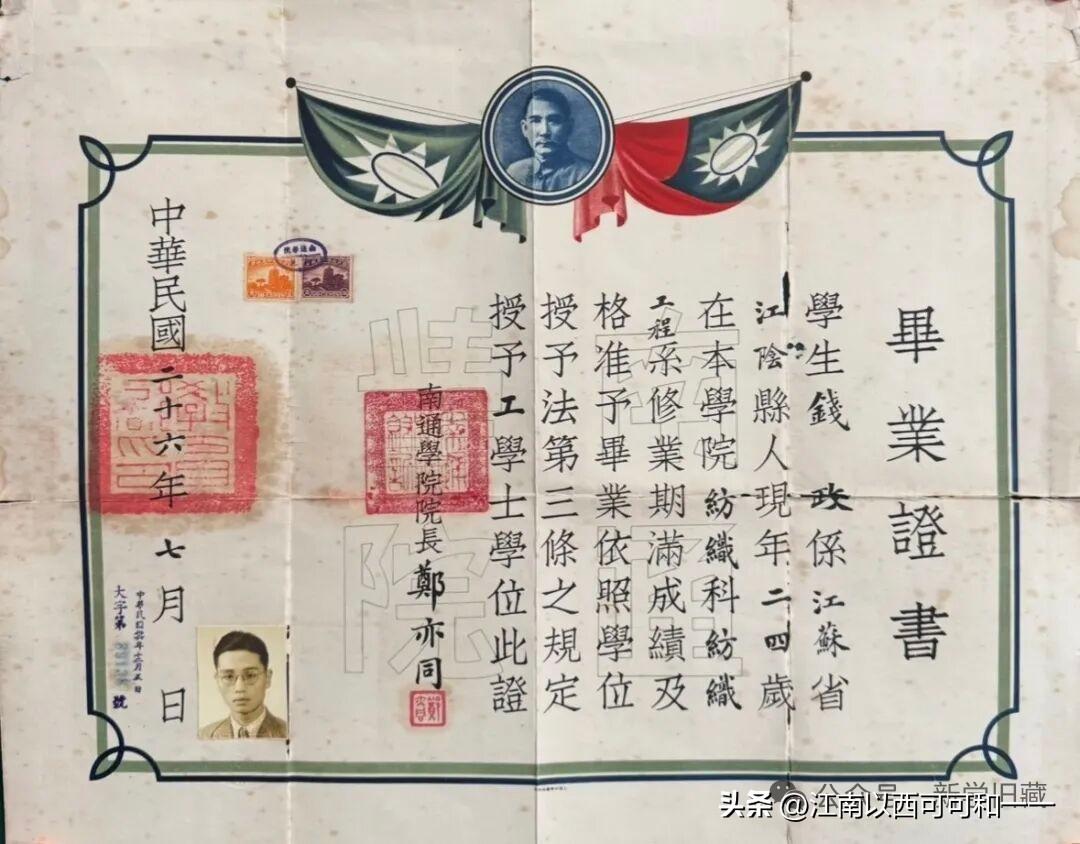 畢業證書
學生錢政係江蘇省
江陰縣人現年二四歲
在本學院紡織科紡織
工程系修業期滿成績及
格准予畢業依照學位
授予法第三條之規定
授予工學士學位此證
南通學院院長鄭亦同
中華民國二十六年七月日
大字第
號
公众号·新学旧藏
头条@江南以西可可和